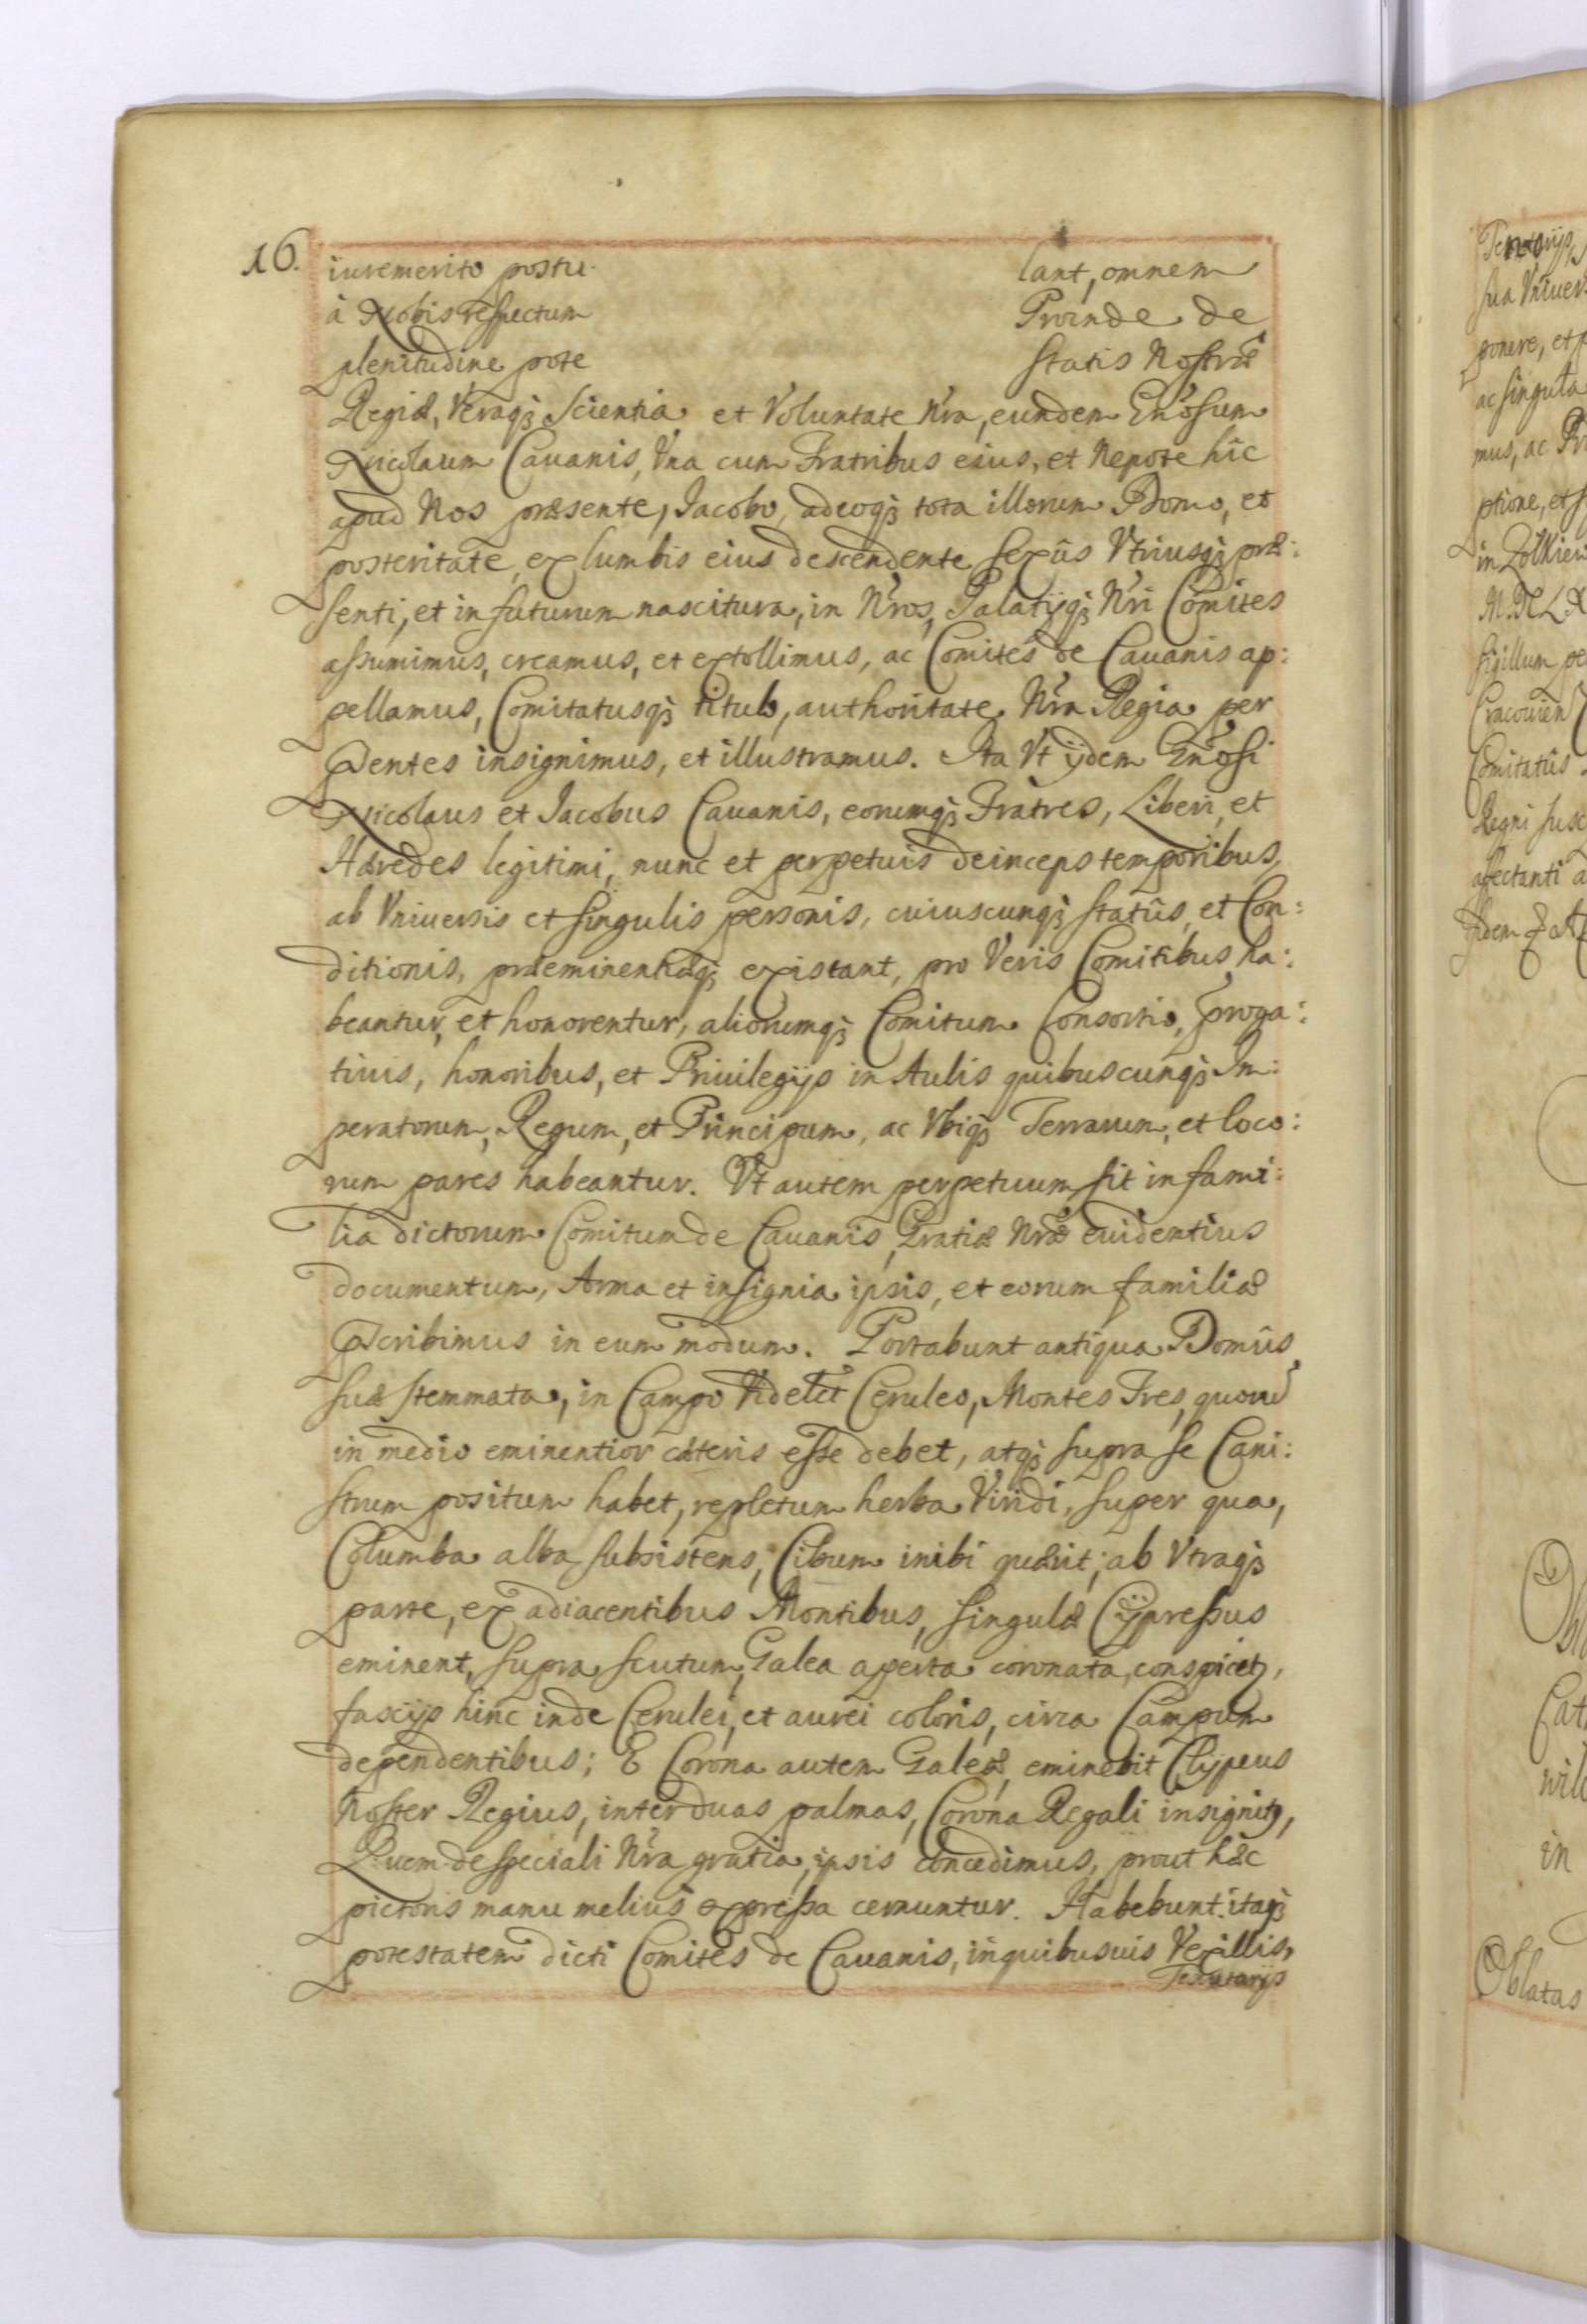 16.
iuremerito postu lant, omnem
à Nobis respectum Proinde de
plenitudine pote statis Nostræ
Regiæ, Veraqꝫ Scientia et Voluntate Nrã, eundem Gnõsum
Nicolaum Cauanis, Vna cum Fratribus eius, et Nepote hîc
apud Nos præsente, Iacobo, adeoqꝫ tota illorum Domo, et
posteritate, ex lumbis eius descendente sexûs Vtriusqꝫ præ:
senti, et in futurum nascitura, in Nros, Palatijqꝫ Nri Comites
assumimus, creamus, et extollimus, ac Comites de Cauanis ap:
pellamus, Comitatusqꝫ titulo, authoritate Nrã Regia per
Pdentes insignimus, et illustramus. Ita Vt ijdem Gnõsi
Nicolaus et Iacobus Cauanis, eorumqꝫ Fratres, Liberi, et
Hæredes legitimi, nunc et perpetuis deinceps temporibus,
ab Vniuersis et singulis personis, cuiuscunqꝫ statûs, et Con:
ditionis, præeminentiæqꝫ existant, pro Veris Comitibus ha:
beantur, et honorentur, aliorumqꝫ Comitum Consortio, proga:
tiuis, honoribus, et Priuilegijs in Aulis quibuscunqꝫ Im:
peratorum, Regum, et Principum, ac Vbiqꝫ Terrarum, et loco:
rum pares habeantur. Vt autem perpetuum sit in fami:
lia dictorum Comitum de Cauanis, Gratiæ Nræ euidentius
documentum, Arma et insignia ipsis, et eorum familiæ
Pscribimus in eum modum. Portabunt antiqua Domûs
suæ stemmata, in Campo Videlet Ceruleo, Montes Tres, quorũ
in medio eminentior cæteris esse debet, atqꝫ supra se Cani:
strum positum habet, repletum herba Viridi, super qua,
Columba alba subsistens, Cibum inibi quærit; ab Vtraqꝫ
parte, ex adiacentibus Montibus, singulæ Cypressus
eminent, supra scutum, Galea aperta coronata, conspicetꝫ,
fascijs hinc inde Cerulei, et aurei coloris, circa Campum
dependentibus; E Corona autem Galeæ, eminebit Clypeus
Noster Regius, inter duas palmas, Corona Regali insignitꝫ,
Quem de speciali Nrã gratia, ipsis concedimus, prout hæc
pictoris manu melius expressa cernuntur. Habebunt itaqꝫ
potestatem dicti Comites de Cauanis, in quibusuis Vexillis,
Tentorijs
Tentorijs,
sua Vniuer
ponere, et p
ac singula
mus, ac Pr
ptione, et s
in Zolkien
sigillum pe
Cracouien
Comitatûs
Regni susc
in
Oblatas